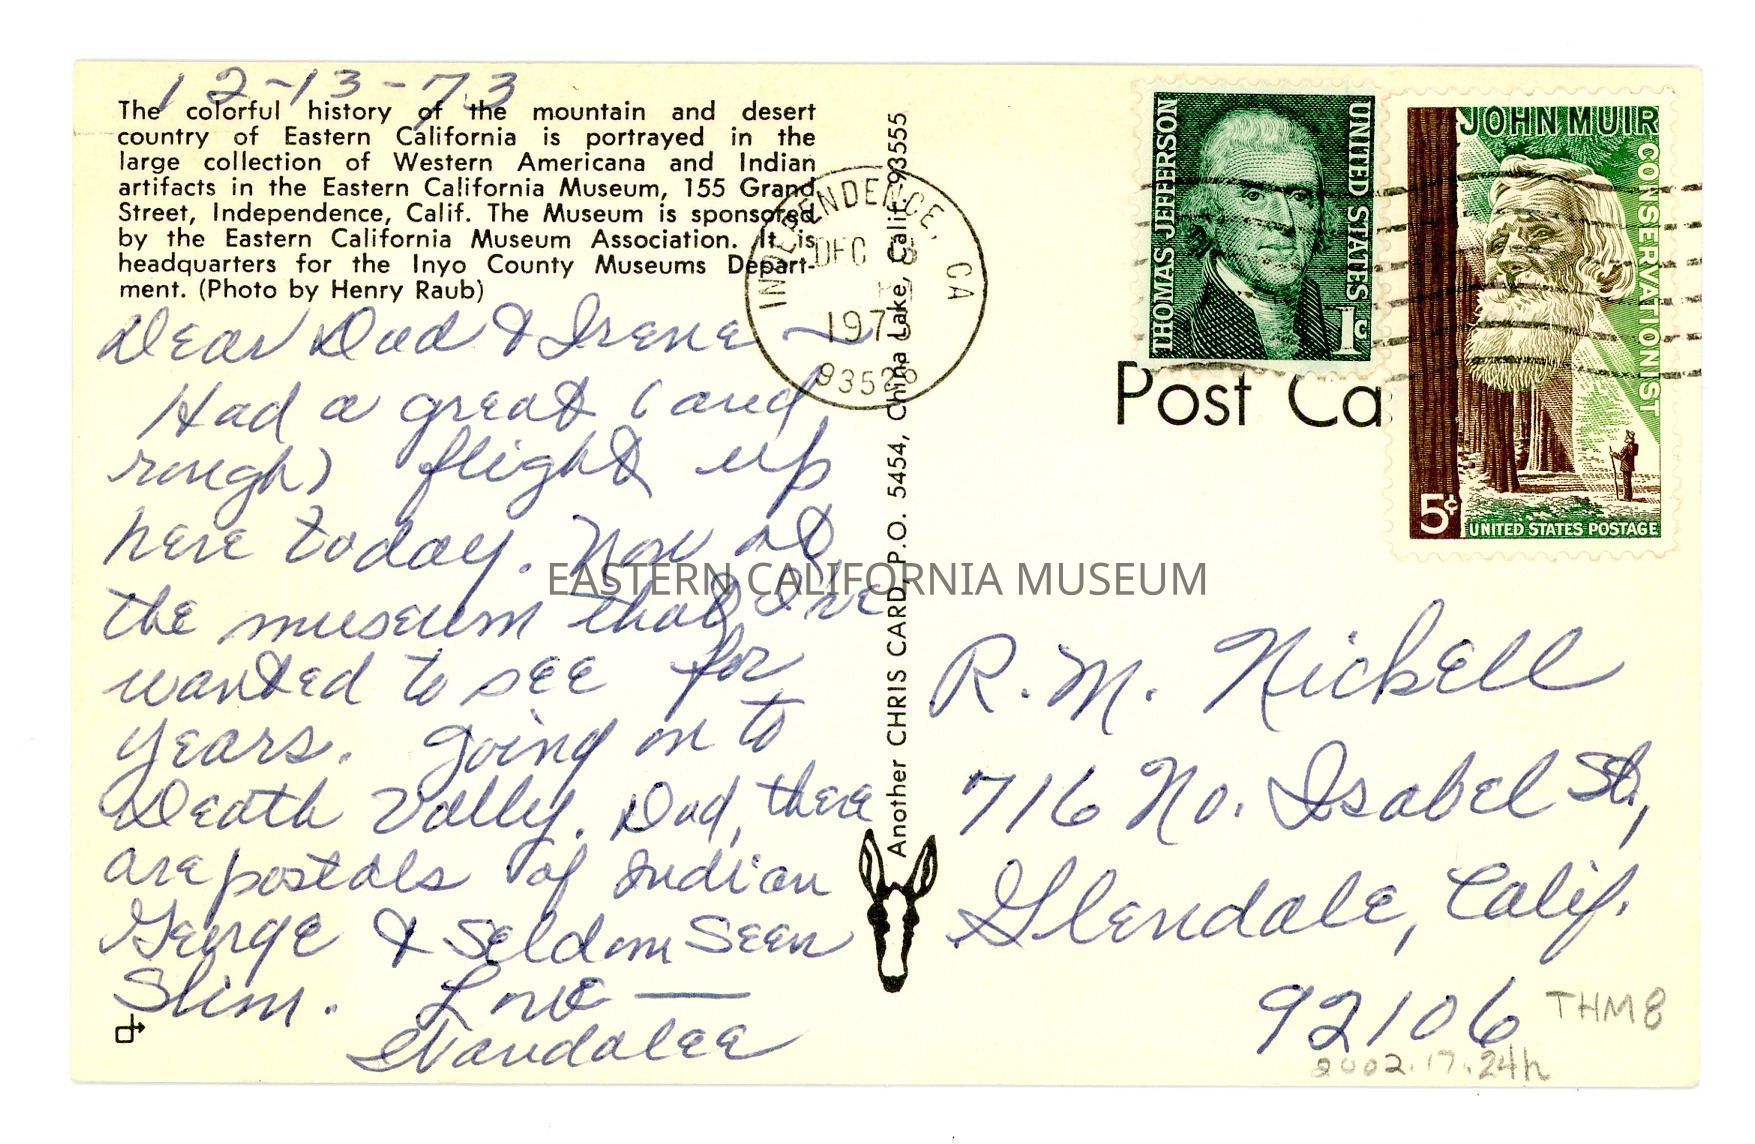 12-13-73
The colorful history of the mountain and desert
country of Eastern California is portrayed in the
large collection of Western Americana and Indian
artifacts in the Eastern California Museum, 155 Grand
Street, Independence, Calif. The Museum is sponsored
by the Eastern California Museum Association. It is
headquarters for the Inyo County Museums Depart-
ment. (Photo by Henry Raub)
Dear Dad & Irene —
Had a great (and
rough) flight up
here today. Now at
the museum that I've
wanted to see for
years. Going on to
Death Valley. Dad, there
are postals of Indian
George & Seldom Seen
Slim. Love —
Wandalee
INDEPENDENCE, CA
DEC
1973
93526
Another CHRIS CARD, P.O. 5454, China Lake, Calif. 93555
THOMAS JEFFERSON
UNITED STATES
1c
JOHN MUIR
CONSERVATIONIST
5¢
UNITED STATES POSTAGE
Post Ca
EASTERN CALIFORNIA MUSEUM
R. M. Nickell
716 No. Isabel St,
Glendale, Calif.
92106
THM8
2002.17.24h